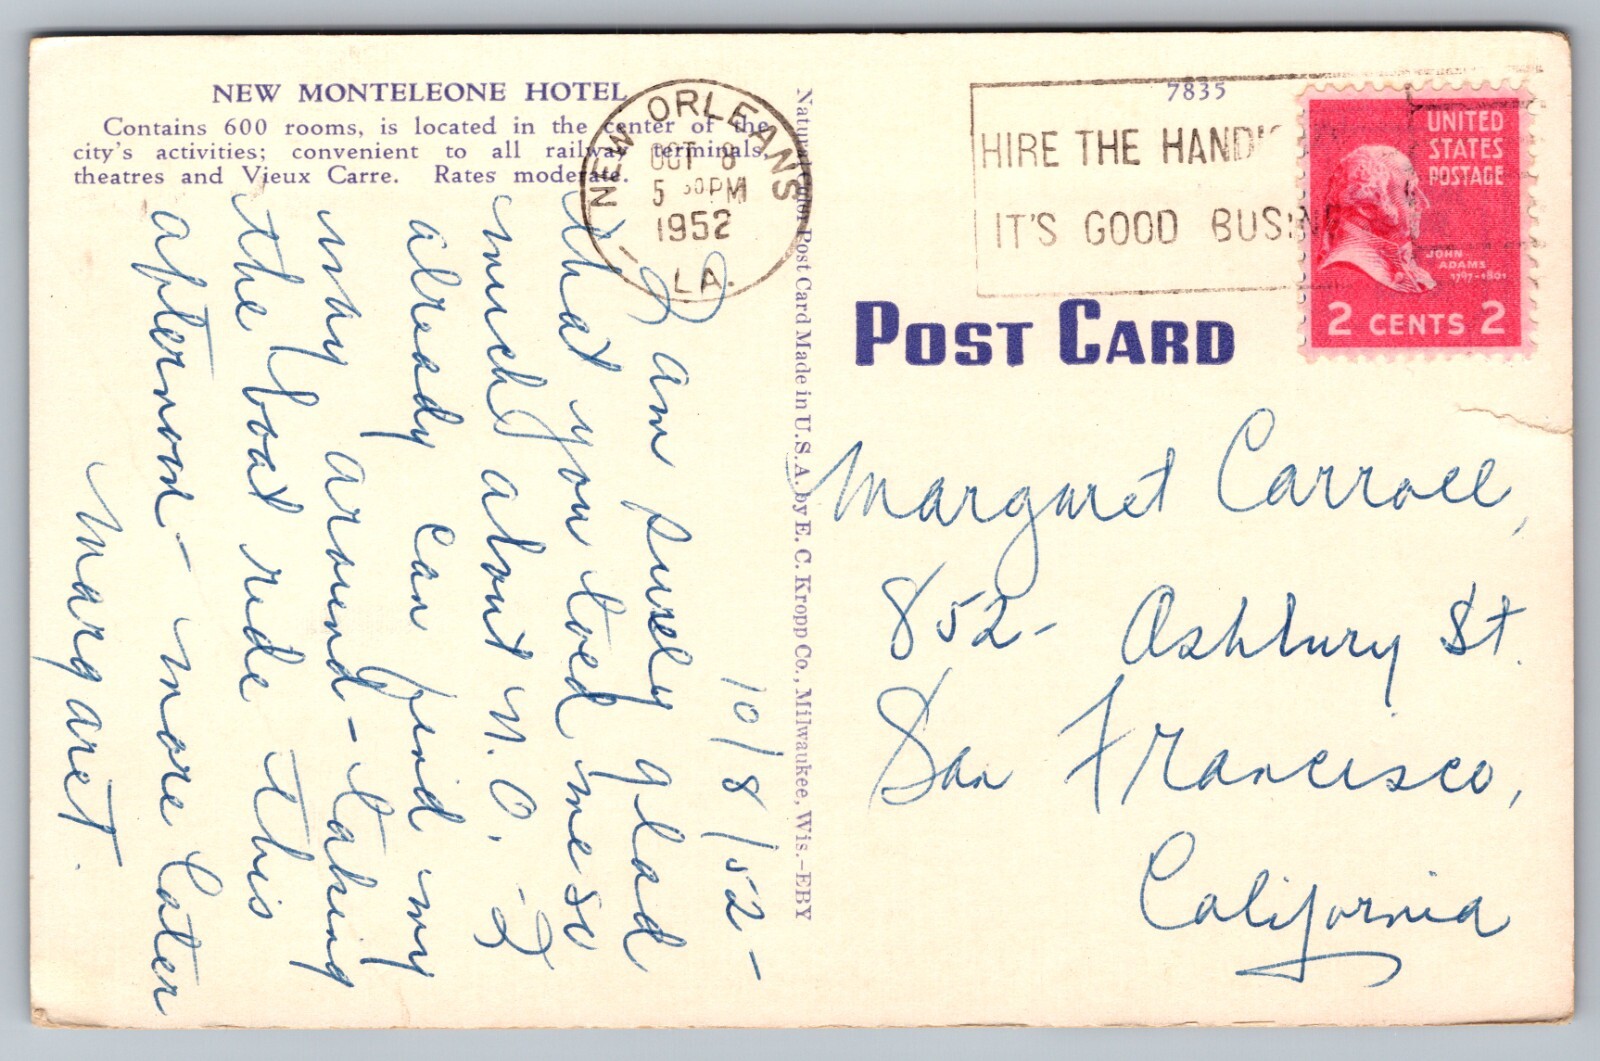 NEW MONTELEONE HOTEL
Contains 600 rooms, is located in the center of the
city's activities; convenient to all railway terminals,
theatres and Vieux Carre. Rates moderate.
NEW ORLEANS
OCT 8
5 30 PM
1952
LA.
7835
HIRE THE HANDI
IT'S GOOD BUSINE
UNITED
STATES
POSTAGE
JOHN
ADAMS
1797-1801
2 CENTS 2
POST CARD
Natural Color Post Card Made in U.S.A. by E. C. Kropp Co., Milwaukee, Wis.-EBY
10/8/52-
I am surely glad
that you toed me so
much about N.O. - I
already can find my
way around - taking
the boat ride this
afternoon - more later
Margaret.
Margaret Carroll,
852- Ashbury St.
San Francisco,
California